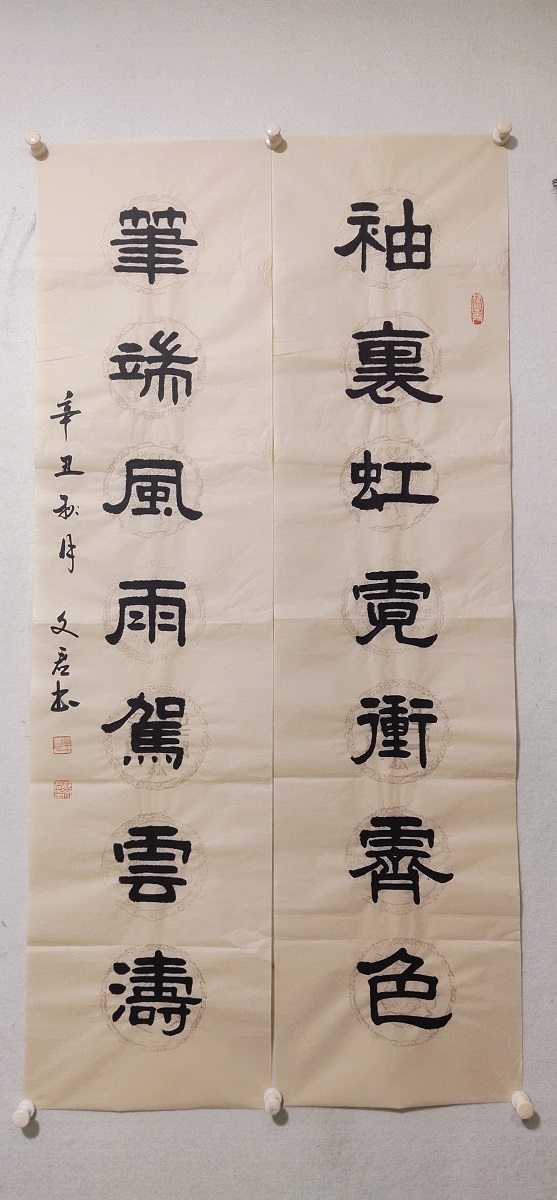 袖裏虹霓衝霽色
筆端風雨駕雲濤
辛丑秋月 文君书